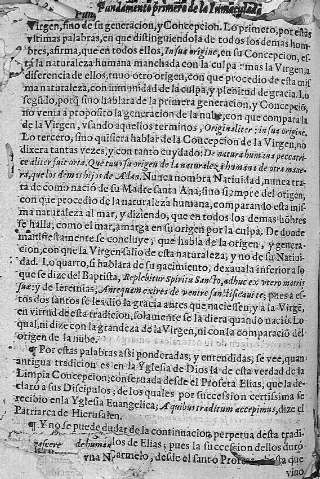 Fundamento primero de la Inmaculada
Virgen, sino de su generacion, y Concepcion. Lo primero, por estas
vltimas palabras, en que distinguiendola de todos los demas hom-
bres, afirma, que en todos ellos, In sua origine, en su Concepcion, es-
tà la naturaleza humana manchada con la culpa: mas la Virgen à
diferencia de ellos, tuuo otro origen, con que procedio de esta mis-
ma naturaleza, con inmunidad de la culpa, y plenitud de gracia. Lo
segũdo, porq̃ sino hablara de la primera generacion, y Concepciõ,
no venia a proposito la generacion de la nube, con que compara la
de la Virgen, vsando aquellos terminos, Originaliter: in sua origine.
Lo tercero, sino quisiera hablar de la Concepcion de la Virgen, no
dixera tantas vezes; y con tanto cuydado; De natura humana peccatri-
ce aliter fuit orta. Que tuuo su origen de la naturaleza humana de otra mane-
ra, que los demas hijos de Adan. Nunca nombra Natiuidad, nunca tra-
ta de como naciò de su Madre santa Ana, sino siempre del origen,
con que procedio de la naturaleza humana, comparando esta mis-
ma naturaleza al mar, y diziendo, que en todos los demas hõbres
se halla, como el mar, amarga en su origen por la culpa. De donde
manifiestamente se concluye, que habla de origen, y genera-
cion, con que la Virgen salio de esta naturaleza, y no de su Natiui-
dad. Lo quarto, si hablara de su nacimiento, dexauala inferior a lo
que se dize del Baptista, Replebitur Spiritu Sancto, adhuc ex vtero matris
suæ: y de Ieremias, Antequam exires de ventre sanctificaui te; pues a es-
tos dos santos se les dio la gracia antes que naciessen; y a la Virgẽ,
en virtud de esta tradicion, solamente se la diera quando naciò. Lo
qual, ni dize con la grandeza de la Virgen, ni con la comparaciõ del
origen de la nube.
¶ Por estas palabras assi ponderadas, y entendidas, se vee, quan
antigua tradicion es en la Yglesia de Dios la de esta verdad de la
Limpia Concepcion; continuada desde el Profeta Elias, que la de-
clarò a sus Discipulos, de los quales por succession certissima se
recibio en la Yglesia Euangelica; A quibus traditum accepimus, dize el
Patriarca de Hierusalen.
¶ Y no se puede dudar de la continuacion perpetua desta tradi-
los de Elias; pues la succession dellos durò
Carmelo, desde el santo Profeta
vino